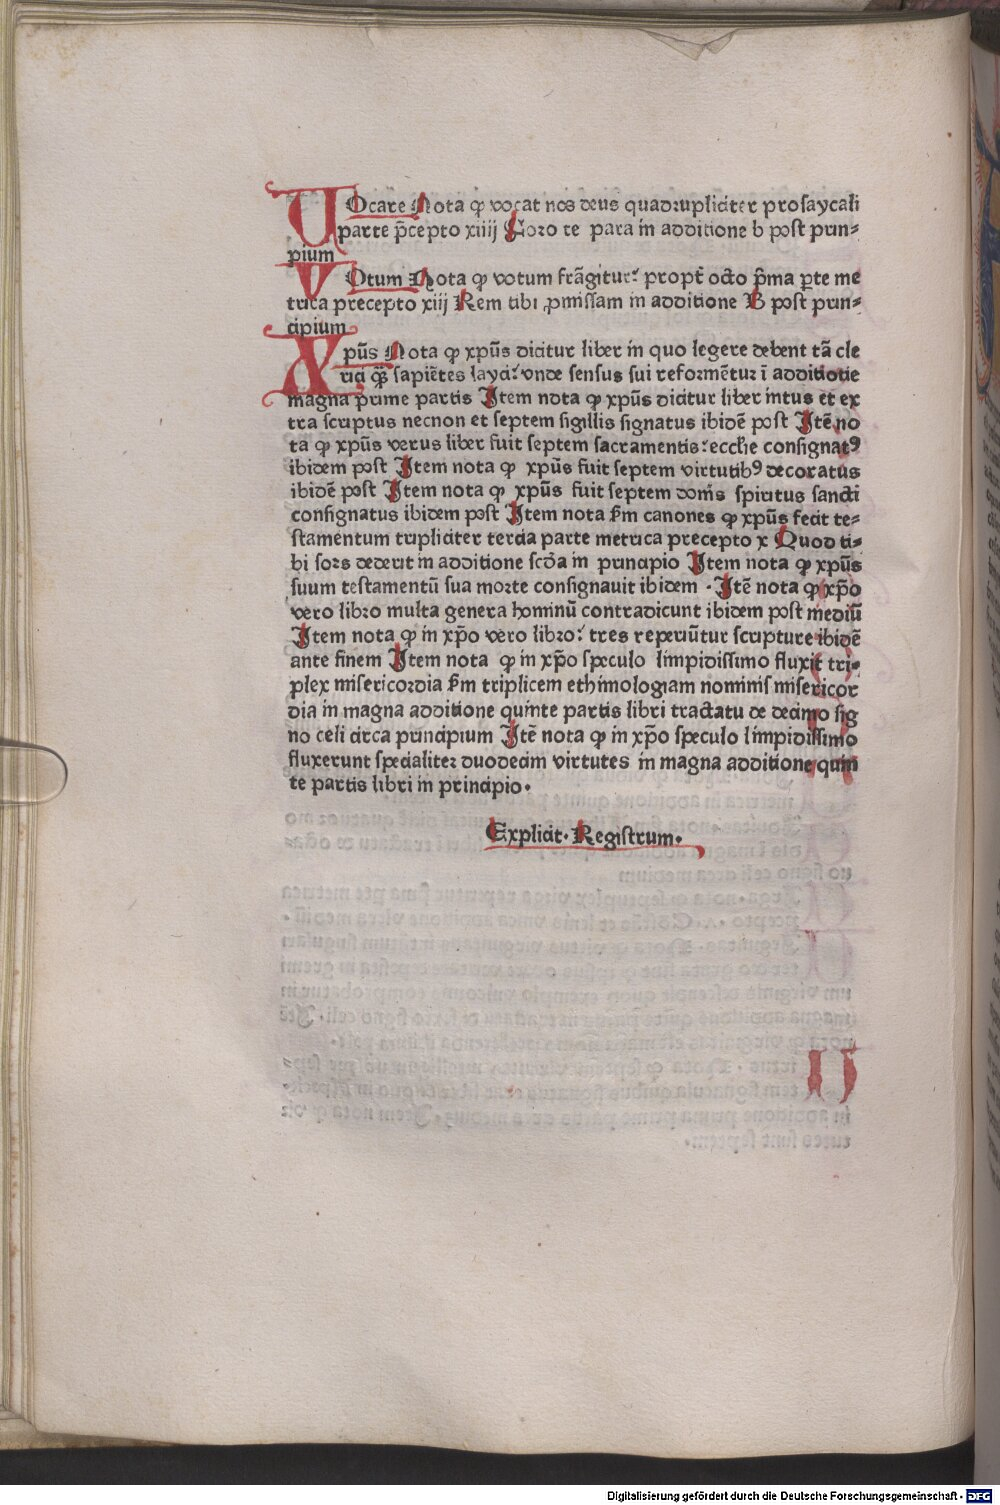 VOcare Nota ꝙ vocat nos deus quadrupliciter prosaycali
parte p̄cepto xiiij Coro te para in additione b post prin⸗
pium
VOtum Nota ꝙ votum frāgitur: propt̄ octo p̄ma ꝑte me
trica precepto xiij Rem tibi ꝓmissam in additione B post prin⸗
cipium
Xpūs Nota ꝙ xpūs dicitur liber in quo legere debent tā cle
rici q̄ꝫ sapiētes layci: vnde sensus sui reformētur ī additione
magna prime partis Item nota ꝙ xpūs dicitur liber intus et ex
tra scriptus necnon et septem sigillis signatus ibidē post Itē no
ta ꝙ xpūs verus liber fuit septem sacramentis: ecclīe consignatꝰ
ibidem post Item nota ꝙ xpūs fuit septem virtutibꝰ decoratus
ibidē post Item nota ꝙ xpūs fuit septem donis spiritus sancti
consignatus ibidem post Item nota ẜm canones ꝙ xpūs fecit te⸗
stamentum tripliciter tercia parte metrica precepto x Quod ti⸗
bi sors dederit in additione scd̄a in principio Item nota ꝙ xpūs
suum testamentū sua morte consignauit ibidem · Itē nota ꝙ xp̄o
vero libro multa genera hominū contradicunt ibidem post mediū
Item nota ꝙ in xp̄o vero libro: tres reperiūtur scripture ibidē
ante finem Item nota ꝙ in xp̄o speculo limpidissimo fluxit tri⸗
plex misericordia ẜm triplicem ethimologiam nominis misericor
dia in magna additione quinte partis libri tractatu de decimo sig
no celi circa principium Itē nota ꝙ in xp̄o speculo limpidissimo
fluxerunt specialiter duodecim virtutes in magna additione quin
te partis libri in principio·
Explicit· Registrum·
Digitalisierung gefördert durch die Deutsche Forschungsgemeinschaft - DFG